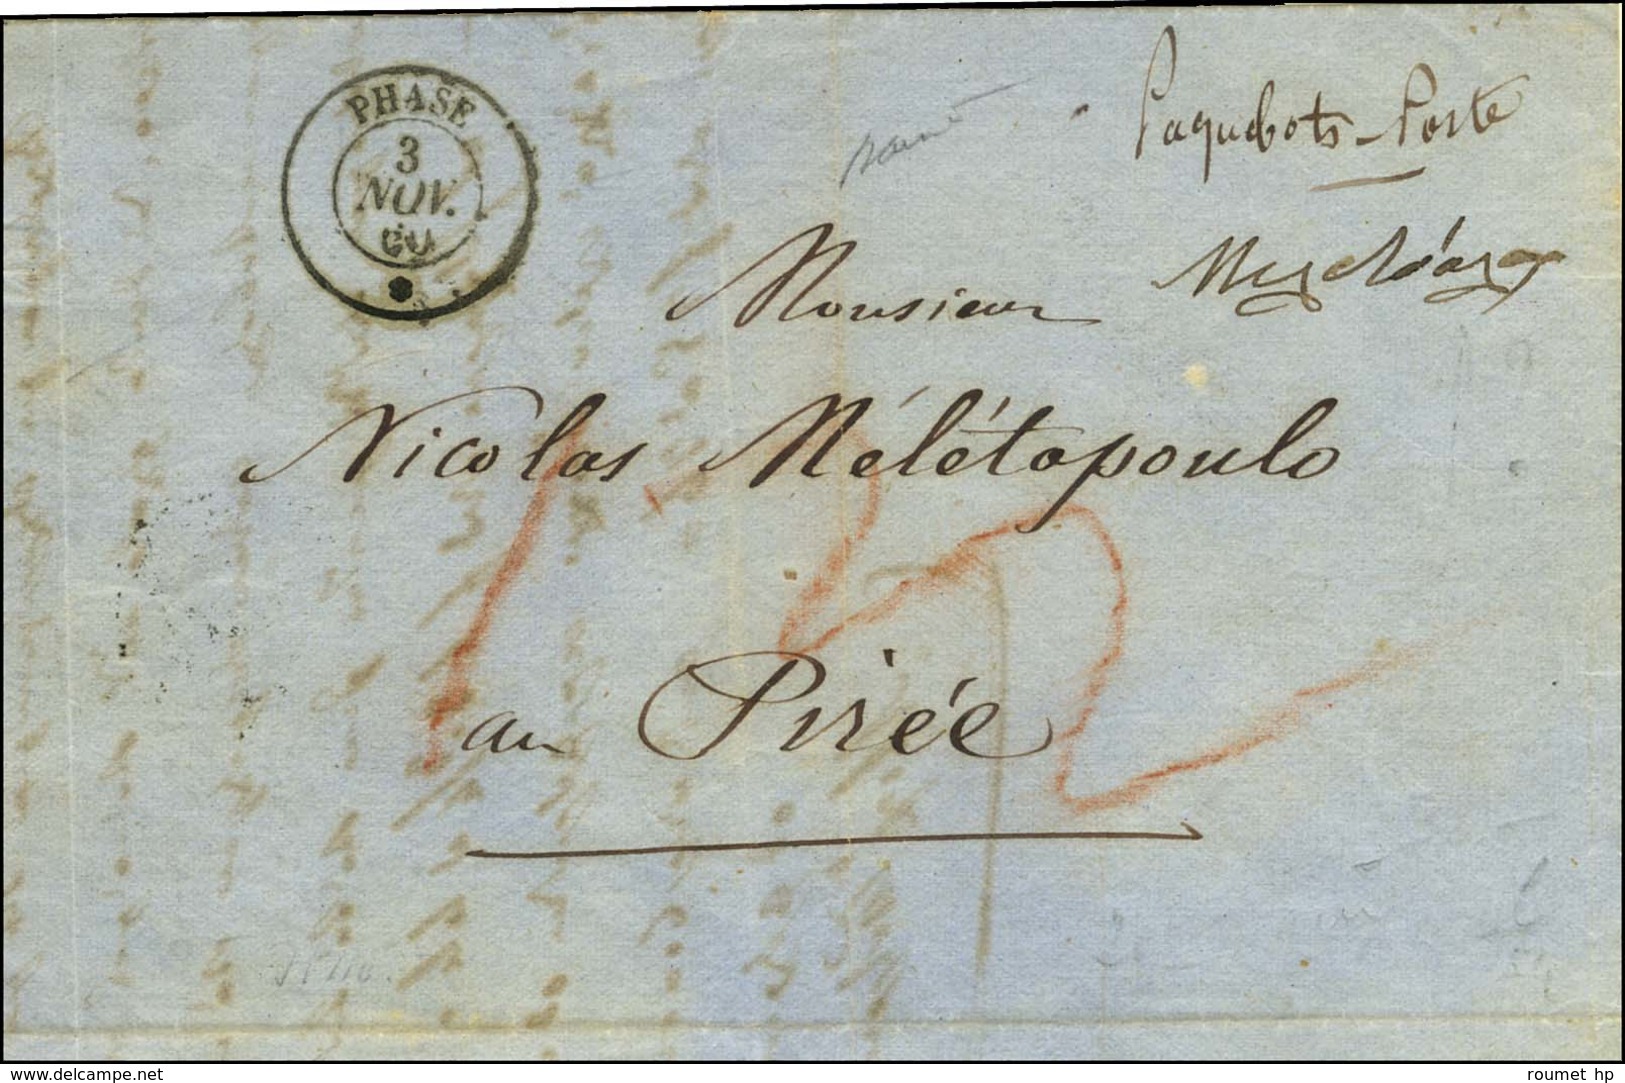 PHASE
3
NOV.
60
Paquebots-Poste
Monsieur
Nicolas Mélétopoulo
au Pirée
www.delcampe.net
roumet hp